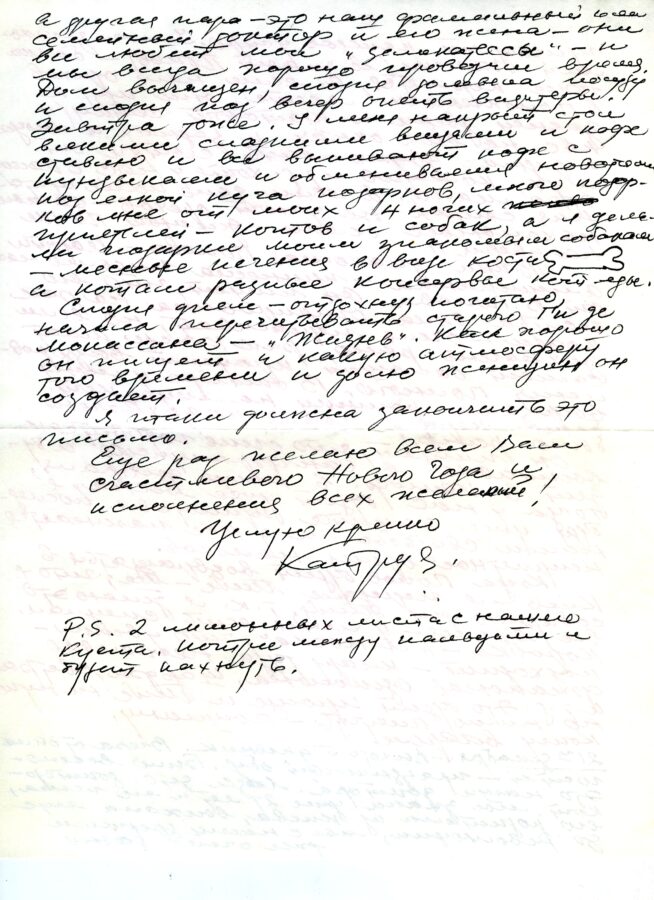 а другая пара – это наш фамильный или
семейный доктор и его жена – они
все любят мои "деликатессы" – и
мы всегда хорошо проводим время.
Дом вычищен, сегодня домыла посуду
и сегодня под вечер опять визитеры.
Завтра тоже. У меня накрыт стол
всякими сладкими вещами и кофе
ставлю и все выпивают кофе с
и обмениваемся новостями
под елкой куча подарков, много подар-
ков мне от моих 4 ногих
приятелей – котов и собак, а я дела-
ли подарки моим знакомым собакам
– мясные печения в виде кости
а котам разные консервы кот. еды.
Сегодня днем – отдохну, почитаю,
начала перечитывать старого Ги де
Мопассана – "Жизнь". Как хорошо
он пишет и какую атмосферу
того времени и долю женщин он
создает.
Я таки должна закончить это
письмо.
Еще раз желаю всем Вам
счастливого Нового Года и
исполнения всех желаний!
Целую крепко
P.S. 2 лимонных листа с нашего
куста. Потри между пальцами и
будет пахнуть.